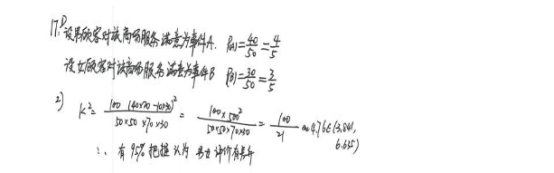 17.1) 设男顾客对该商场服务满意为事件A. P(A)=40/50=4/5
设女顾客对该商场服务满意为事件B P(B)=30/50=3/5
2) K²=100(40×20-10×30)²/50×50×70×30=100×500²/50×50×70×30=100/21≈4.76∈(3.841,
6.635)
∴有95%把握认为 男女评价有差异